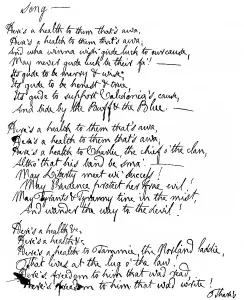 Song —
Here's a health to them that's awa,
Here's a health to them that's awa;
And wha winna wish gude luck to our cause,
May never gude luck be their fa'! —
Its gude to be merry & wise,
Its gude to be honest & true,
Its gude to support Caledonia's cause,
And bide by the Buff & the Blue. —
Here's a health to them that's awa,
Here's a health to them that's awa;
Here's a health to Charlie, the chief o' the clan,
Altho' that his band be sma'. —
May Liberty meet wi' success!
May Prudence protect her frae evil!
May Tyrants & Tyranny tine in the mist,
And wander the way to the devil!
Here's a health &c,
Here's a health &c.
Here's a health to Tammie, the Norland laddie,
That lives at the lug o' the law!
Here's freedom to him that wad read,
Here's freedom to him that wad write!